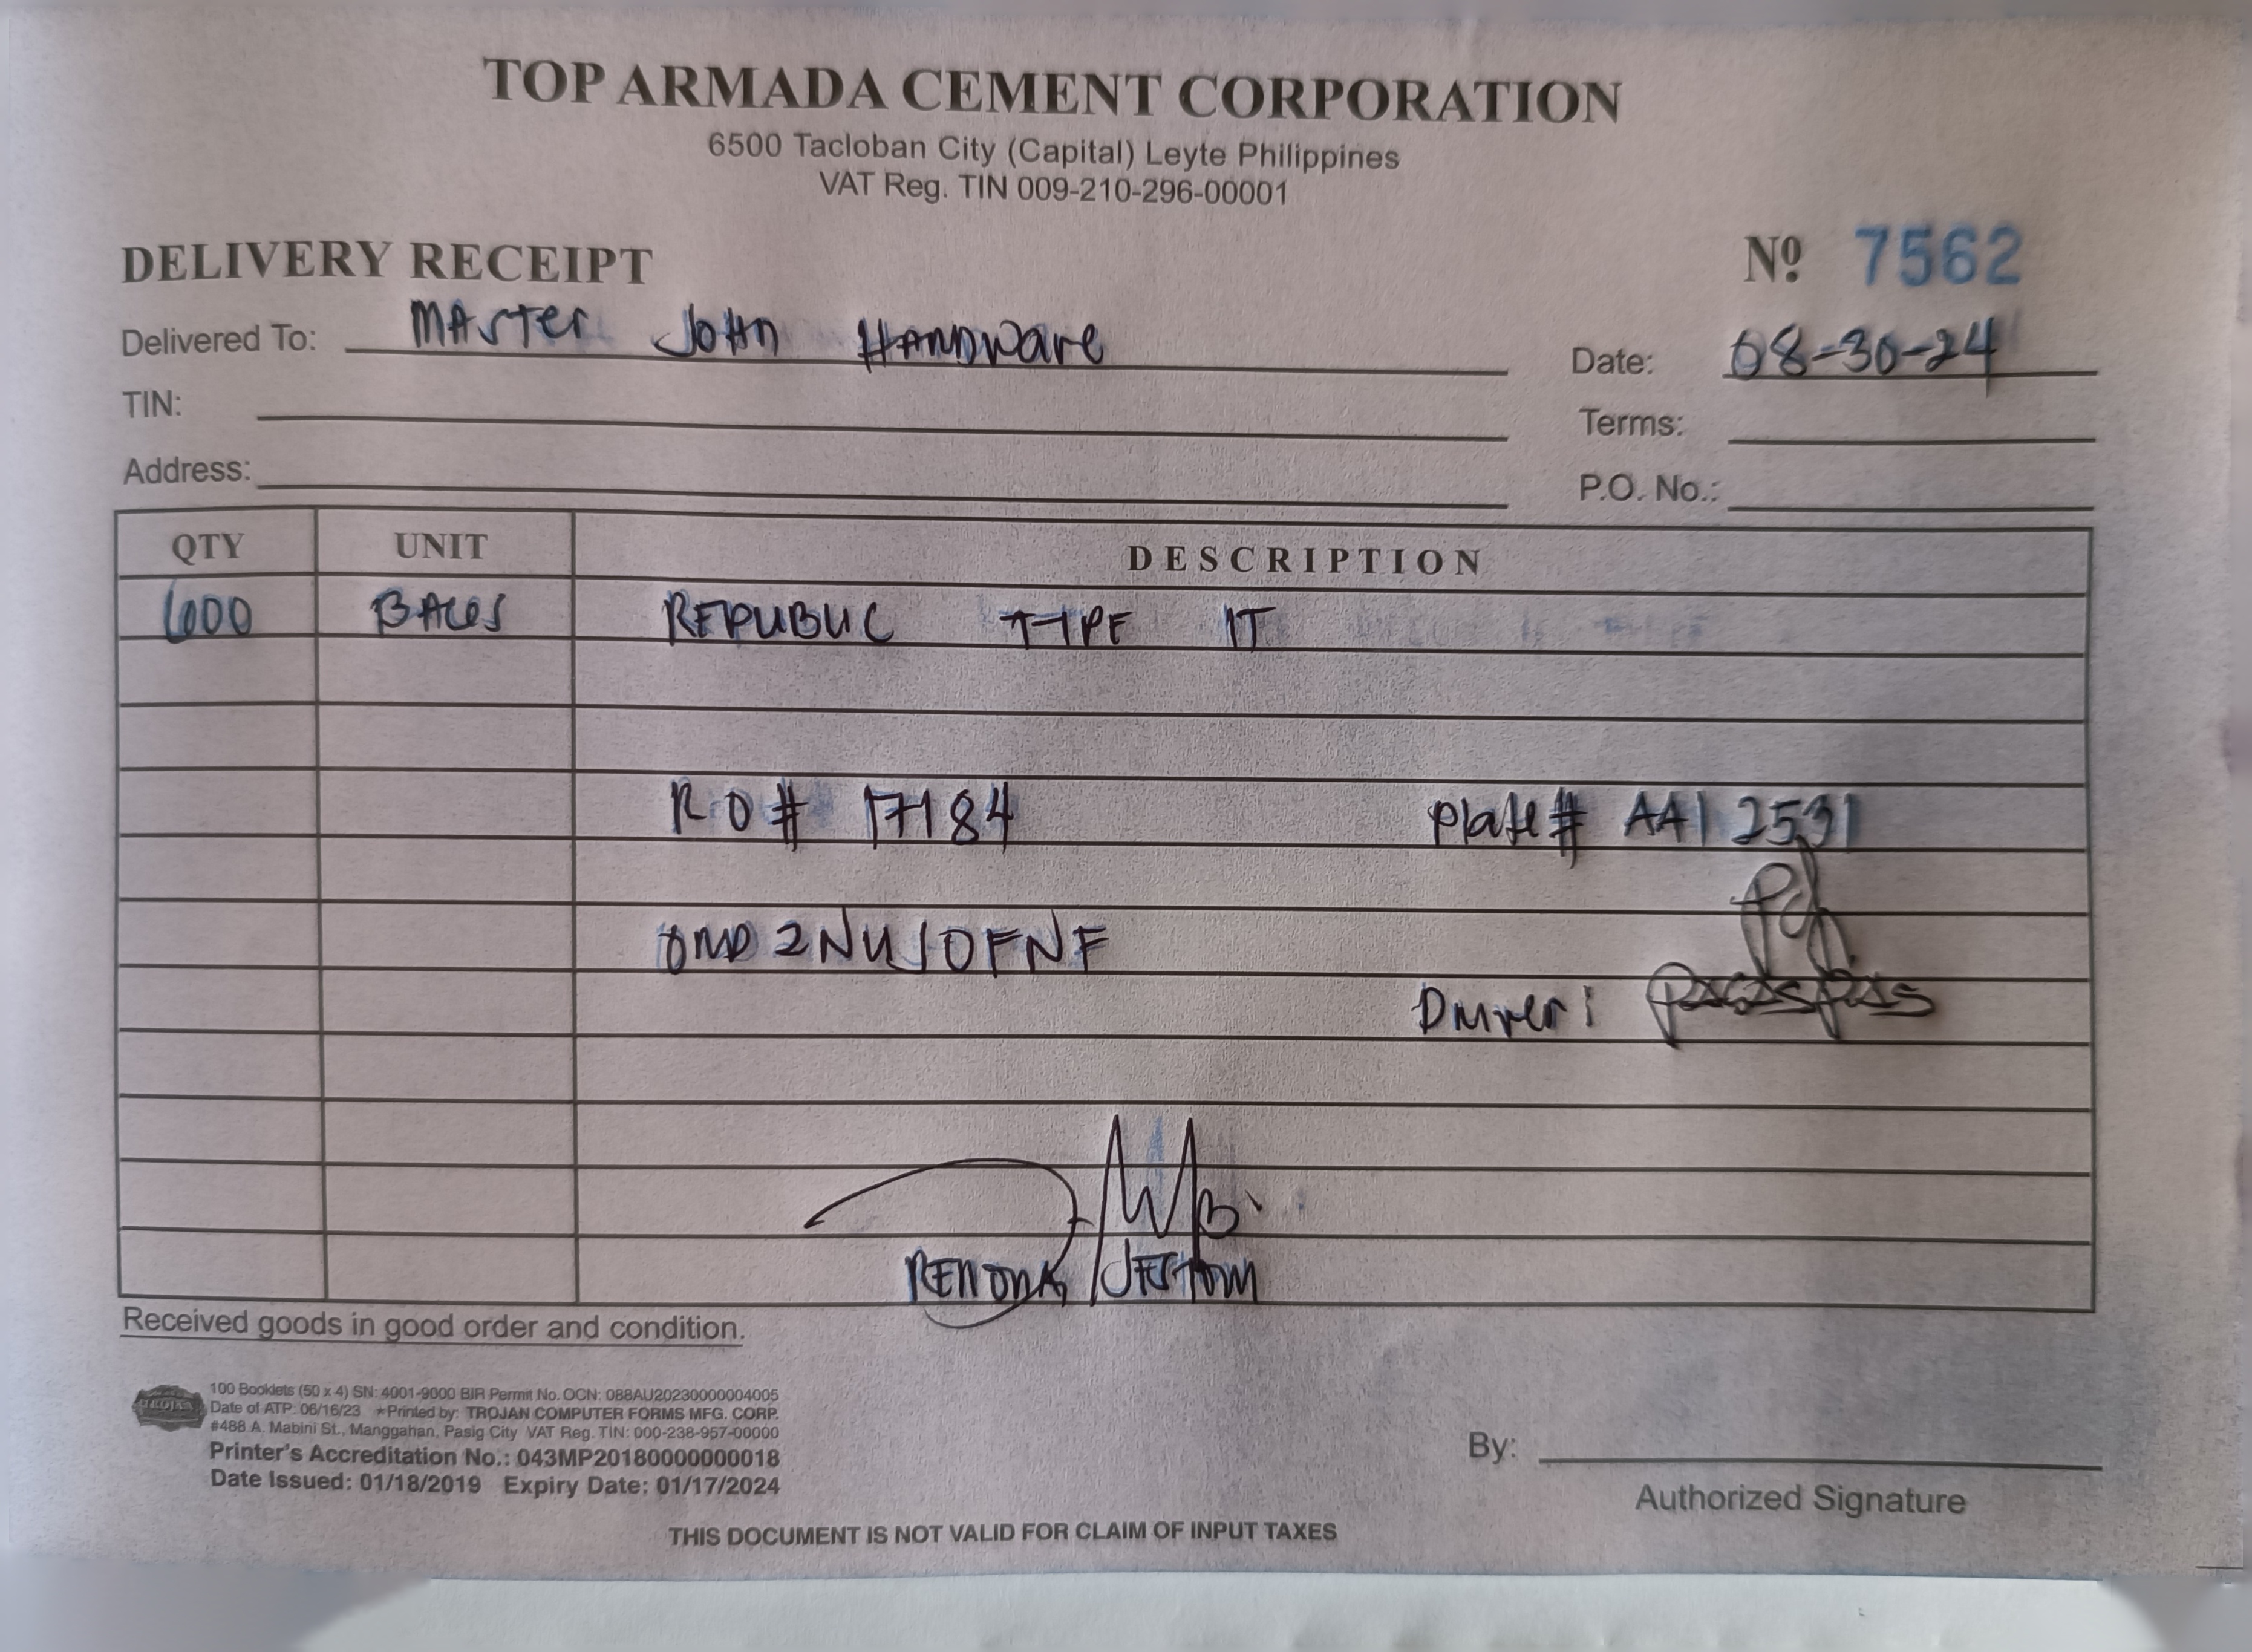 TOP ARMADA CEMENT CORPORATION
6500 Tacloban City (Capital) Leyte Philippines
VAT Reg. TIN 009-210-296-00001
DELIVERY RECEIPT Nº 7562
Delivered To: MASTER JOHN HARDWARE Date: 08-30-24
TIN: Terms:
Address: P.O. No.:
QTY UNIT DESCRIPTION
600 REPUBLIC TYPE 1T
RO# 17184 Plate# AAI 2531
Driver:
Received goods in good order and condition.
100 Booklets (50 x 4) SN: 4001-9000 BIR Permit No. OCN: 088AU20230000004005
Date of ATP: 06/16/23 *Printed by: TROJAN COMPUTER FORMS MFG. CORP.
#488 A. Mabini St., Manggahan, Pasig City VAT Reg. TIN: 000-238-957-00000
Printer's Accreditation No.: 043MP20180000000018
Date Issued: 01/18/2019 Expiry Date: 01/17/2024
By:
Authorized Signature
THIS DOCUMENT IS NOT VALID FOR CLAIM OF INPUT TAXES